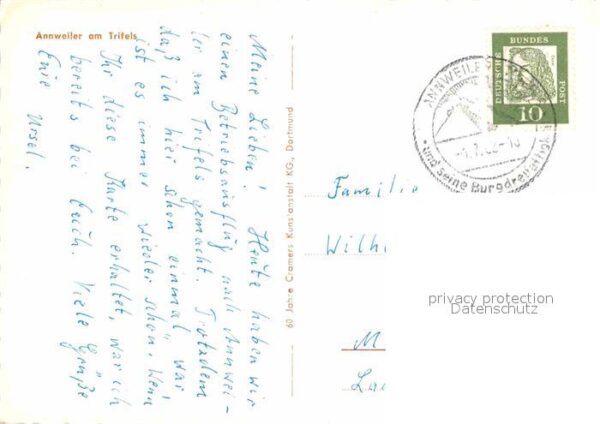 Annweiler am Trifels
Meine Lieben! Heute haben wir
einen Betriebsausflug nach Annwei-
ler am Trifels gemacht. Trotzdem
daß ich hier schon einmal war
ist es immer wieder schön. Wenn
Ihr diese Karte erhaltet, war ich
bereits bei Euch. Viele Grüße
Eure Ursel.
60 Jahre Cramers Kunstanstalt KG., Dortmund
DEUTSCHE
BUNDES
POST
10
ANNWEILE
und seine Burgdreifaltigk
Familie
Wilh
M
La
privacy protection
Datenschutz